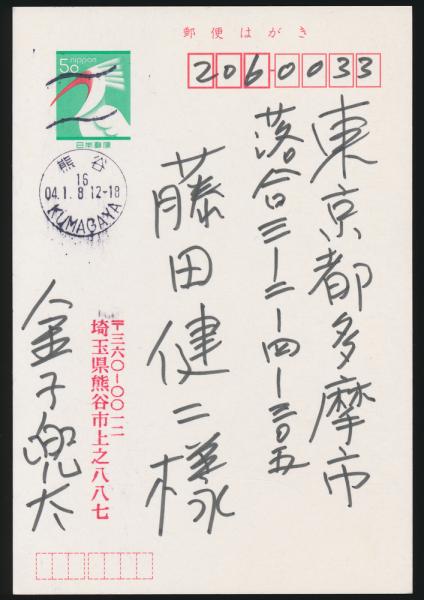 郵便はがき
50 nippon
日本郵便
206-0033
熊谷
16
04.1.8 12-18
KUMAGAYA
東京都多摩市
落合三-二-四-二〇五
藤田健二様
〒三六〇-〇〇一二
埼玉県熊谷市上之八八七
金子兜太